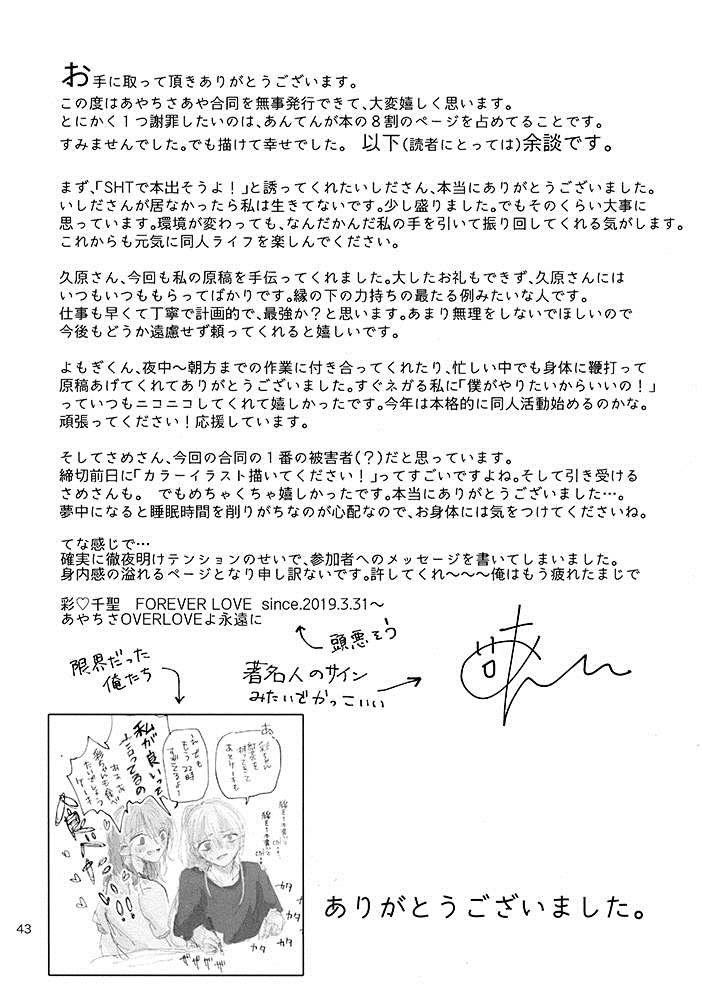 お手に取って頂きありがとうございます。
この度はあやちさあや合同を無事発行できて、大変嬉しく思います。
とにかく1つ謝罪したいのは、あんてんが本の8割のページを占めてることです。
すみませんでした。でも描けて幸せでした。 以下(読者にとっては)余談です。
まず、「SHTで本出そうよ！」と誘ってくれたいしださん、本当にありがとうございました。
いしださんが居なかったら私は生きてないです。少し盛りました。でもそのくらい大事に
思っています。環境が変わっても、なんだかんだ私の手を引いて振り回してくれる気がします。
これからも元気に同人ライフを楽しんでください。
久原さん、今回も私の原稿を手伝ってくれました。大したお礼もできず、久原さんには
いつもいつももらってばかりです。縁の下の力持ちの最たる例みたいな人です。
仕事も早くて丁寧で計画的で、最強か？と思います。あまり無理をしないでほしいので
今後もどうか遠慮せず頼ってくれると嬉しいです。
よもぎくん、夜中〜朝方までの作業に付き合ってくれたり、忙しい中でも身体に鞭打って
原稿あげてくれてありがとうございました。すぐネガる私に「僕がやりたいからいいの！」
っていつもニコニコしてくれて嬉しかったです。今年は本格的に同人活動始めるのかな。
頑張ってください！応援しています。
そしてさめさん、今回の合同の1番の被害者(？)だと思っています。
締切前日に「カラーイラスト描いてください！」ってすごいですよね。そして引き受ける
さめさんも。 でもめちゃくちゃ嬉しかったです。本当にありがとうございました…。
夢中になると睡眠時間を削りがちなのが心配なので、お身体には気をつけてくださいね。
てな感じで…
確実に徹夜明けテンションのせいで、参加者へのメッセージを書いてしまいました。
身内感の溢れるページとなり申し訳ないです。許してくれ〜〜〜俺はもう疲れたまじで
彩♡千聖 FOREVER LOVE since.2019.3.31〜
あやちさOVERLOVEよ永遠に
頭悪そう
限界だった
俺たち
著名人のサイン
みたいでかっこいい
私が良いって
言ってるの
でも
もう22時
すぎてるよ！
カタ
カタ
カタ
ザザザザ
ありがとうございました。
43